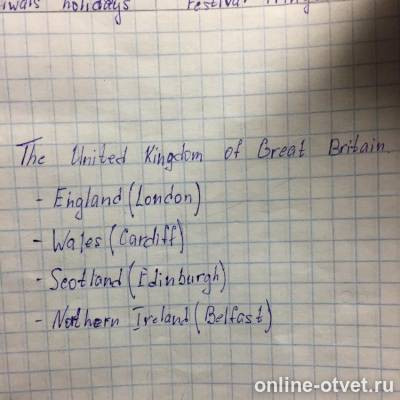 holidays Festival
The United Kingdom of Great Britain.
- England (London)
- Wales (Cardiff)
- Scotland (Edinburgh)
- Northern Ireland (Belfast)
online-otvet.ru